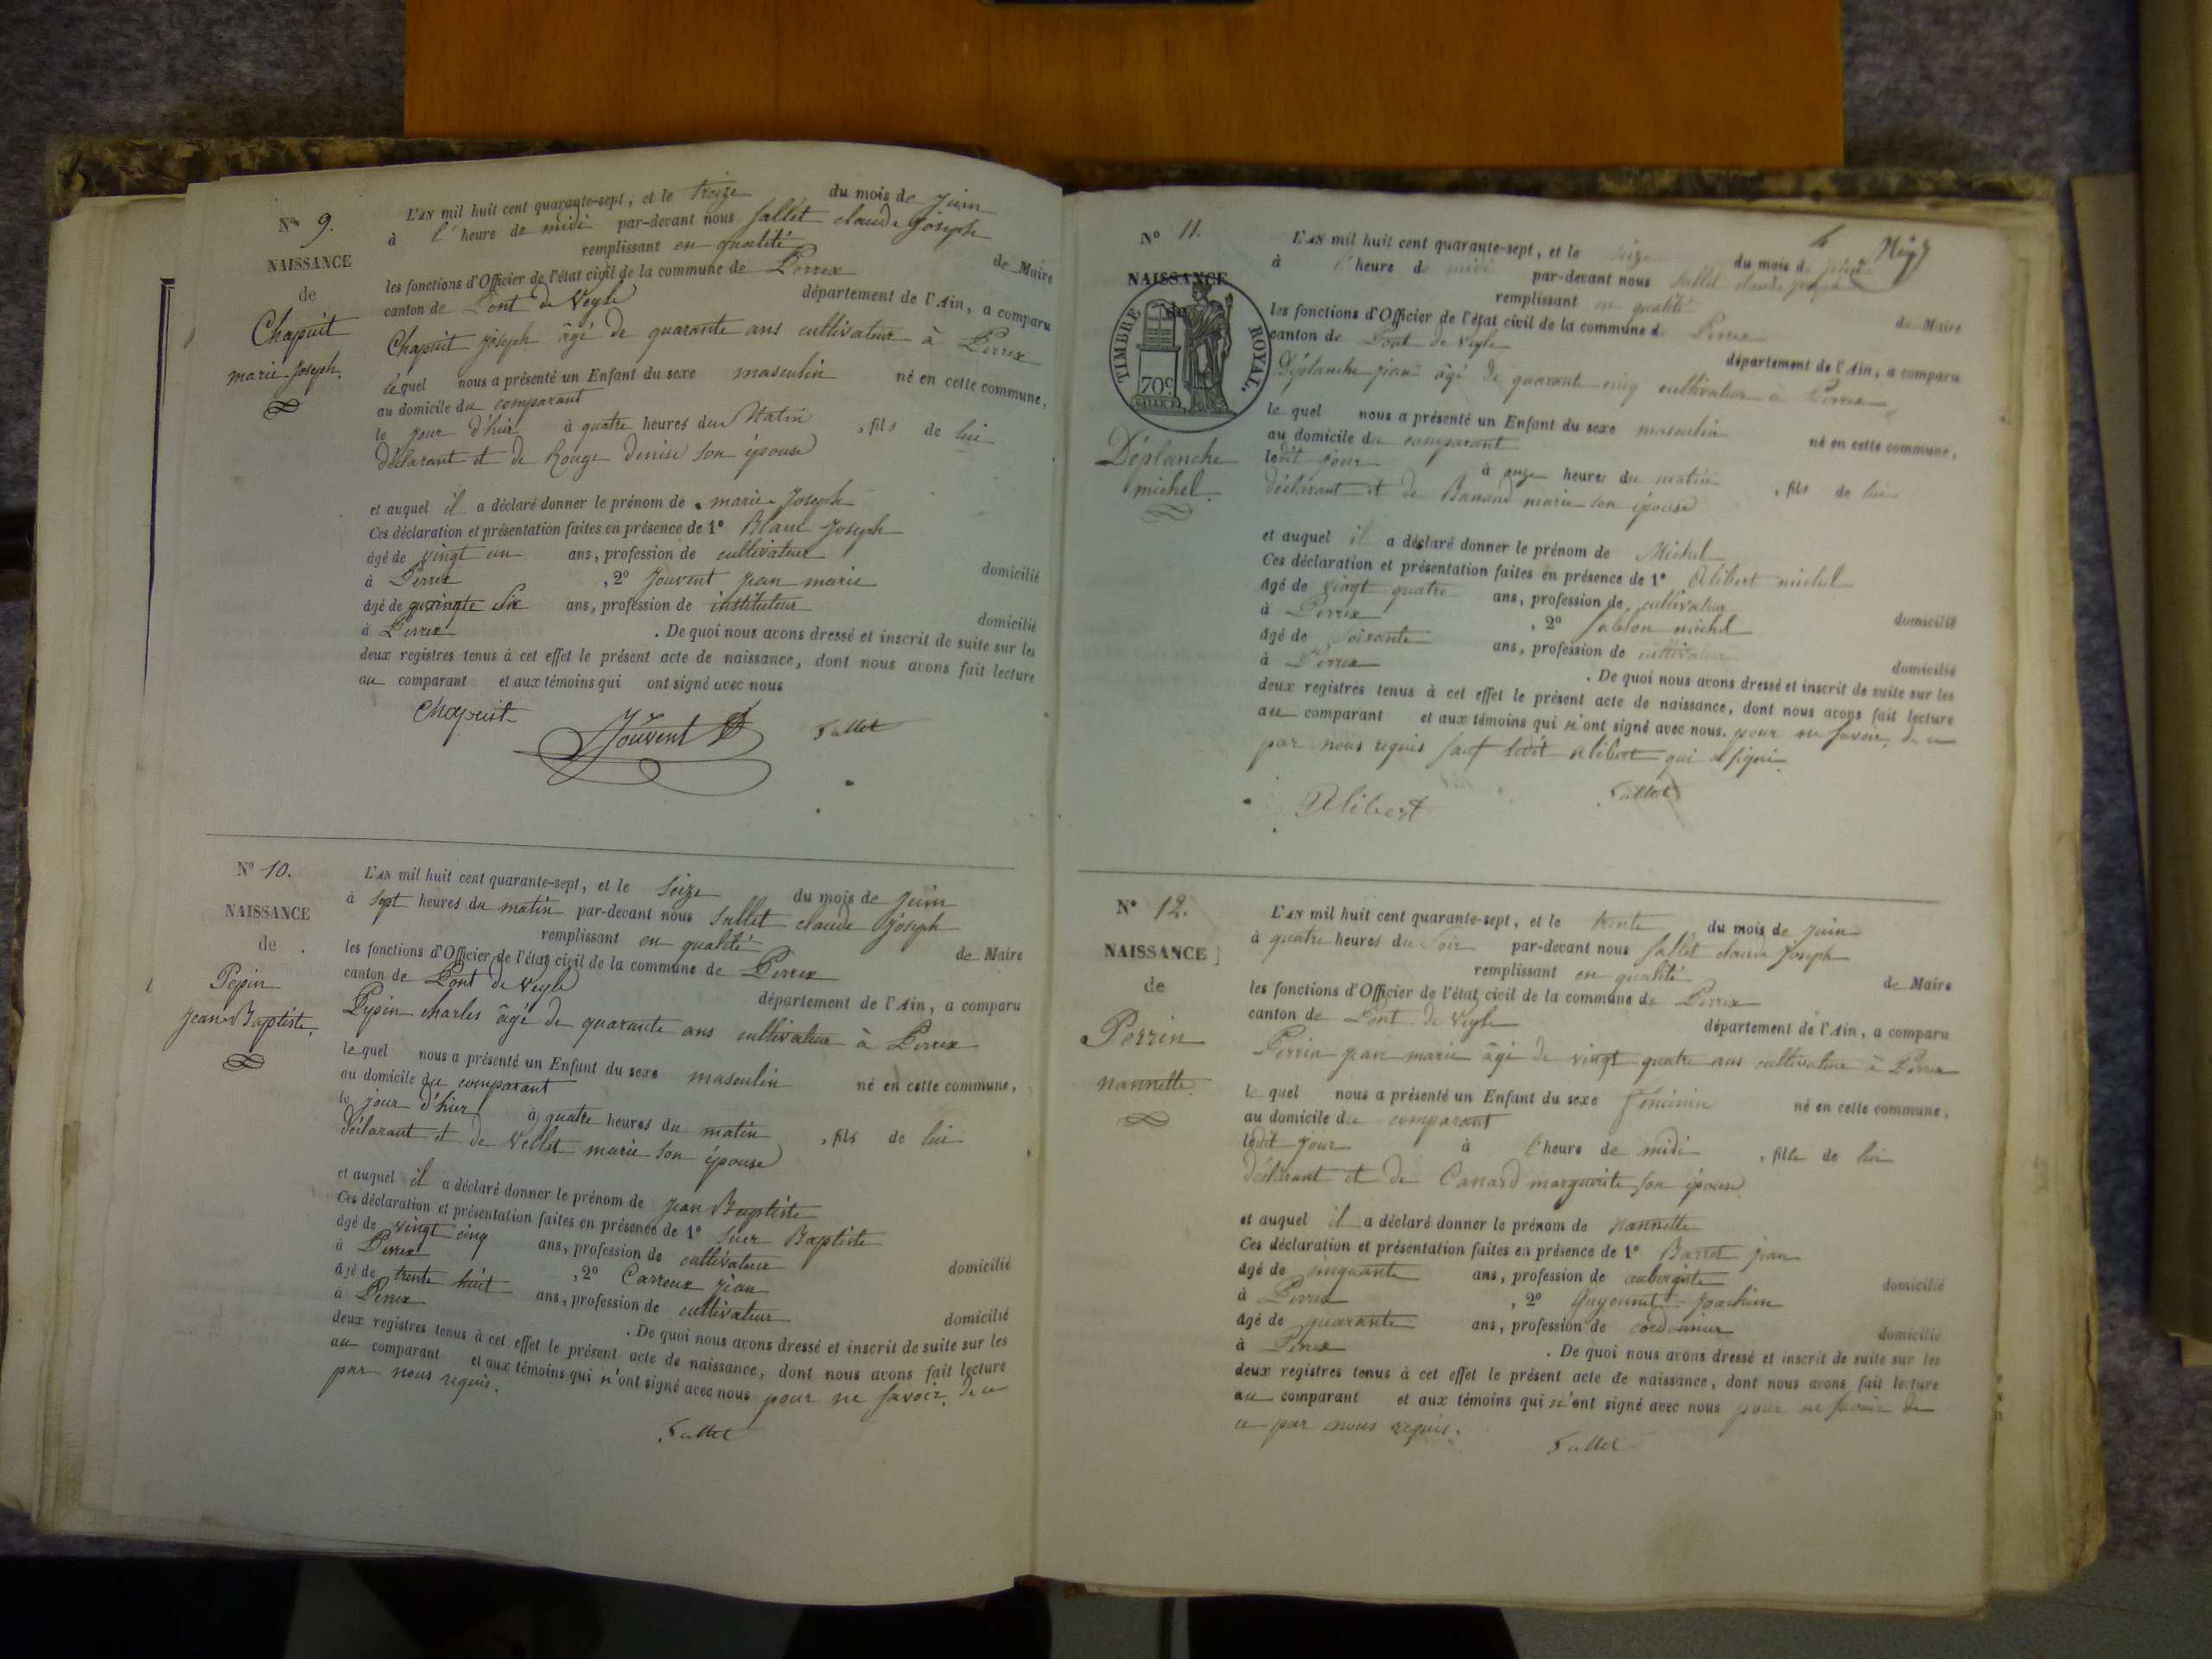 N° 9.
NAISSANCE
de
Chapuit
marie Joseph.
L'AN mil huit cent quarante-sept, et le treize du mois de Juin
à l'heure de midi par-devant nous Sallet claude Joseph
remplissant en qualité de Maire
les fonctions d'Officier de l'état civil de la commune de Perrex
canton de Pont de Veyle département de l'Ain, a comparu
Chapuit joseph âgé de quarante ans cultivateur à Perrex
lequel nous a présenté un Enfant du sexe masculin né en cette commune,
au domicile du comparant
le jour d'hier à quatre heures du Matin, fils de lui
déclarant et de Rouge denise son épouse
et auquel il a déclaré donner le prénom de marie Joseph
Ces déclaration et présentation faites en présence de 1° Blanc Joseph
âgé de vingt un ans, profession de cultivateur domicilié
à Perrex, 2° Jouvent jean marie
âgé de vingt Six ans, profession de instituteur domicilié
à Perrex. De quoi nous avons dressé et inscrit de suite sur les
deux registres tenus à cet effet le présent acte de naissance, dont nous avons fait lecture
au comparant et aux témoins qui ont signé avec nous
Chapuit Jouvent Sallet
N° 10.
NAISSANCE
de
Pépin
Jean Baptiste.
L'AN mil huit cent quarante-sept, et le seize du mois de Juin
à sept heures du matin par-devant nous Sallet claude joseph
remplissant en qualité de Maire
les fonctions d'Officier de l'état civil de la commune de Perrex
canton de Pont de Veyle département de l'Ain, a comparu
Pépin charles âgé de quarante ans cultivateur à Perrex
lequel nous a présenté un Enfant du sexe masculin né en cette commune,
au domicile du comparant
le jour d'hier à quatre heures du matin, fils de lui
déclarant et de Vellet marie son épouse
et auquel il a déclaré donner le prénom de jean Baptiste
Ces déclaration et présentation faites en présence de 1° Baptiste
âgé de vingt cinq ans, profession de cultivateur domicilié
à Perrex, 2° Carreux jean
âgé de trente huit ans, profession de cultivateur domicilié
à Perrex. De quoi nous avons dressé et inscrit de suite sur les
deux registres tenus à cet effet le présent acte de naissance, dont nous avons fait lecture
au comparant et aux témoins qui n'ont signé avec nous pour ne savoir, de ce
par nous requis.
Sallet
N° 11.
NAISSANCE
de
TIMBRE ROYAL.
70c
Déplanche
michel.
L'AN mil huit cent quarante-sept, et le seize du mois de juin
à l'heure de midi par-devant nous Sallet claude joseph
remplissant en qualité de Maire
les fonctions d'Officier de l'état civil de la commune de Perrex
canton de Pont de Veyle département de l'Ain, a comparu
Déplanche jean âgé de quarante cinq cultivateur à Perrex
lequel nous a présenté un Enfant du sexe masculin né en cette commune,
au domicile du comparant
ledit jour à onze heures du matin, fils de lui
déclarant et de Banand marie son épouse
et auquel il a déclaré donner le prénom de Michel
Ces déclaration et présentation faites en présence de 1° Alibert michel
âgé de vingt quatre ans, profession de cultivateur domicilié
à Perrex, 2° Sablon michel
âgé de soixante ans, profession de cultivateur domicilié
à Perrex. De quoi nous avons dressé et inscrit de suite sur les
deux registres tenus à cet effet le présent acte de naissance, dont nous avons fait lecture
au comparant et aux témoins qui n'ont signé avec nous. pour ne savoir, de ce
par nous requis sauf ledit alibert qui a signé.
Alibert Sallet
N° 12.
NAISSANCE
de
Perrin
nannette.
L'AN mil huit cent quarante-sept, et le trente du mois de juin
à quatre heures du Soir par-devant nous Sallet claude Joseph
remplissant en qualité de Maire
les fonctions d'Officier de l'état civil de la commune de Perrex
canton de Pont de Veyle département de l'Ain, a comparu
Perrin jean marie âgé de vingt quatre ans cultivateur à Perrex
lequel nous a présenté un Enfant du sexe féminin né en cette commune,
au domicile du comparant
ledit jour à l'heure de midi, fille de lui
déclarant et de Canard marguerite son épouse
et auquel il a déclaré donner le prénom de nannette
Ces déclaration et présentation faites en présence de 1° Barret jean
âgé de cinquante ans, profession de aubergiste domicilié
à Perrex, 2° Guyennet Joachim
âgé de quarante ans, profession de cordonnier domicilié
à Perrex. De quoi nous avons dressé et inscrit de suite sur les
deux registres tenus à cet effet le présent acte de naissance, dont nous avons fait lecture
au comparant et aux témoins qui n'ont signé avec nous pour ne savoir de
ce par nous requis.
Sallet